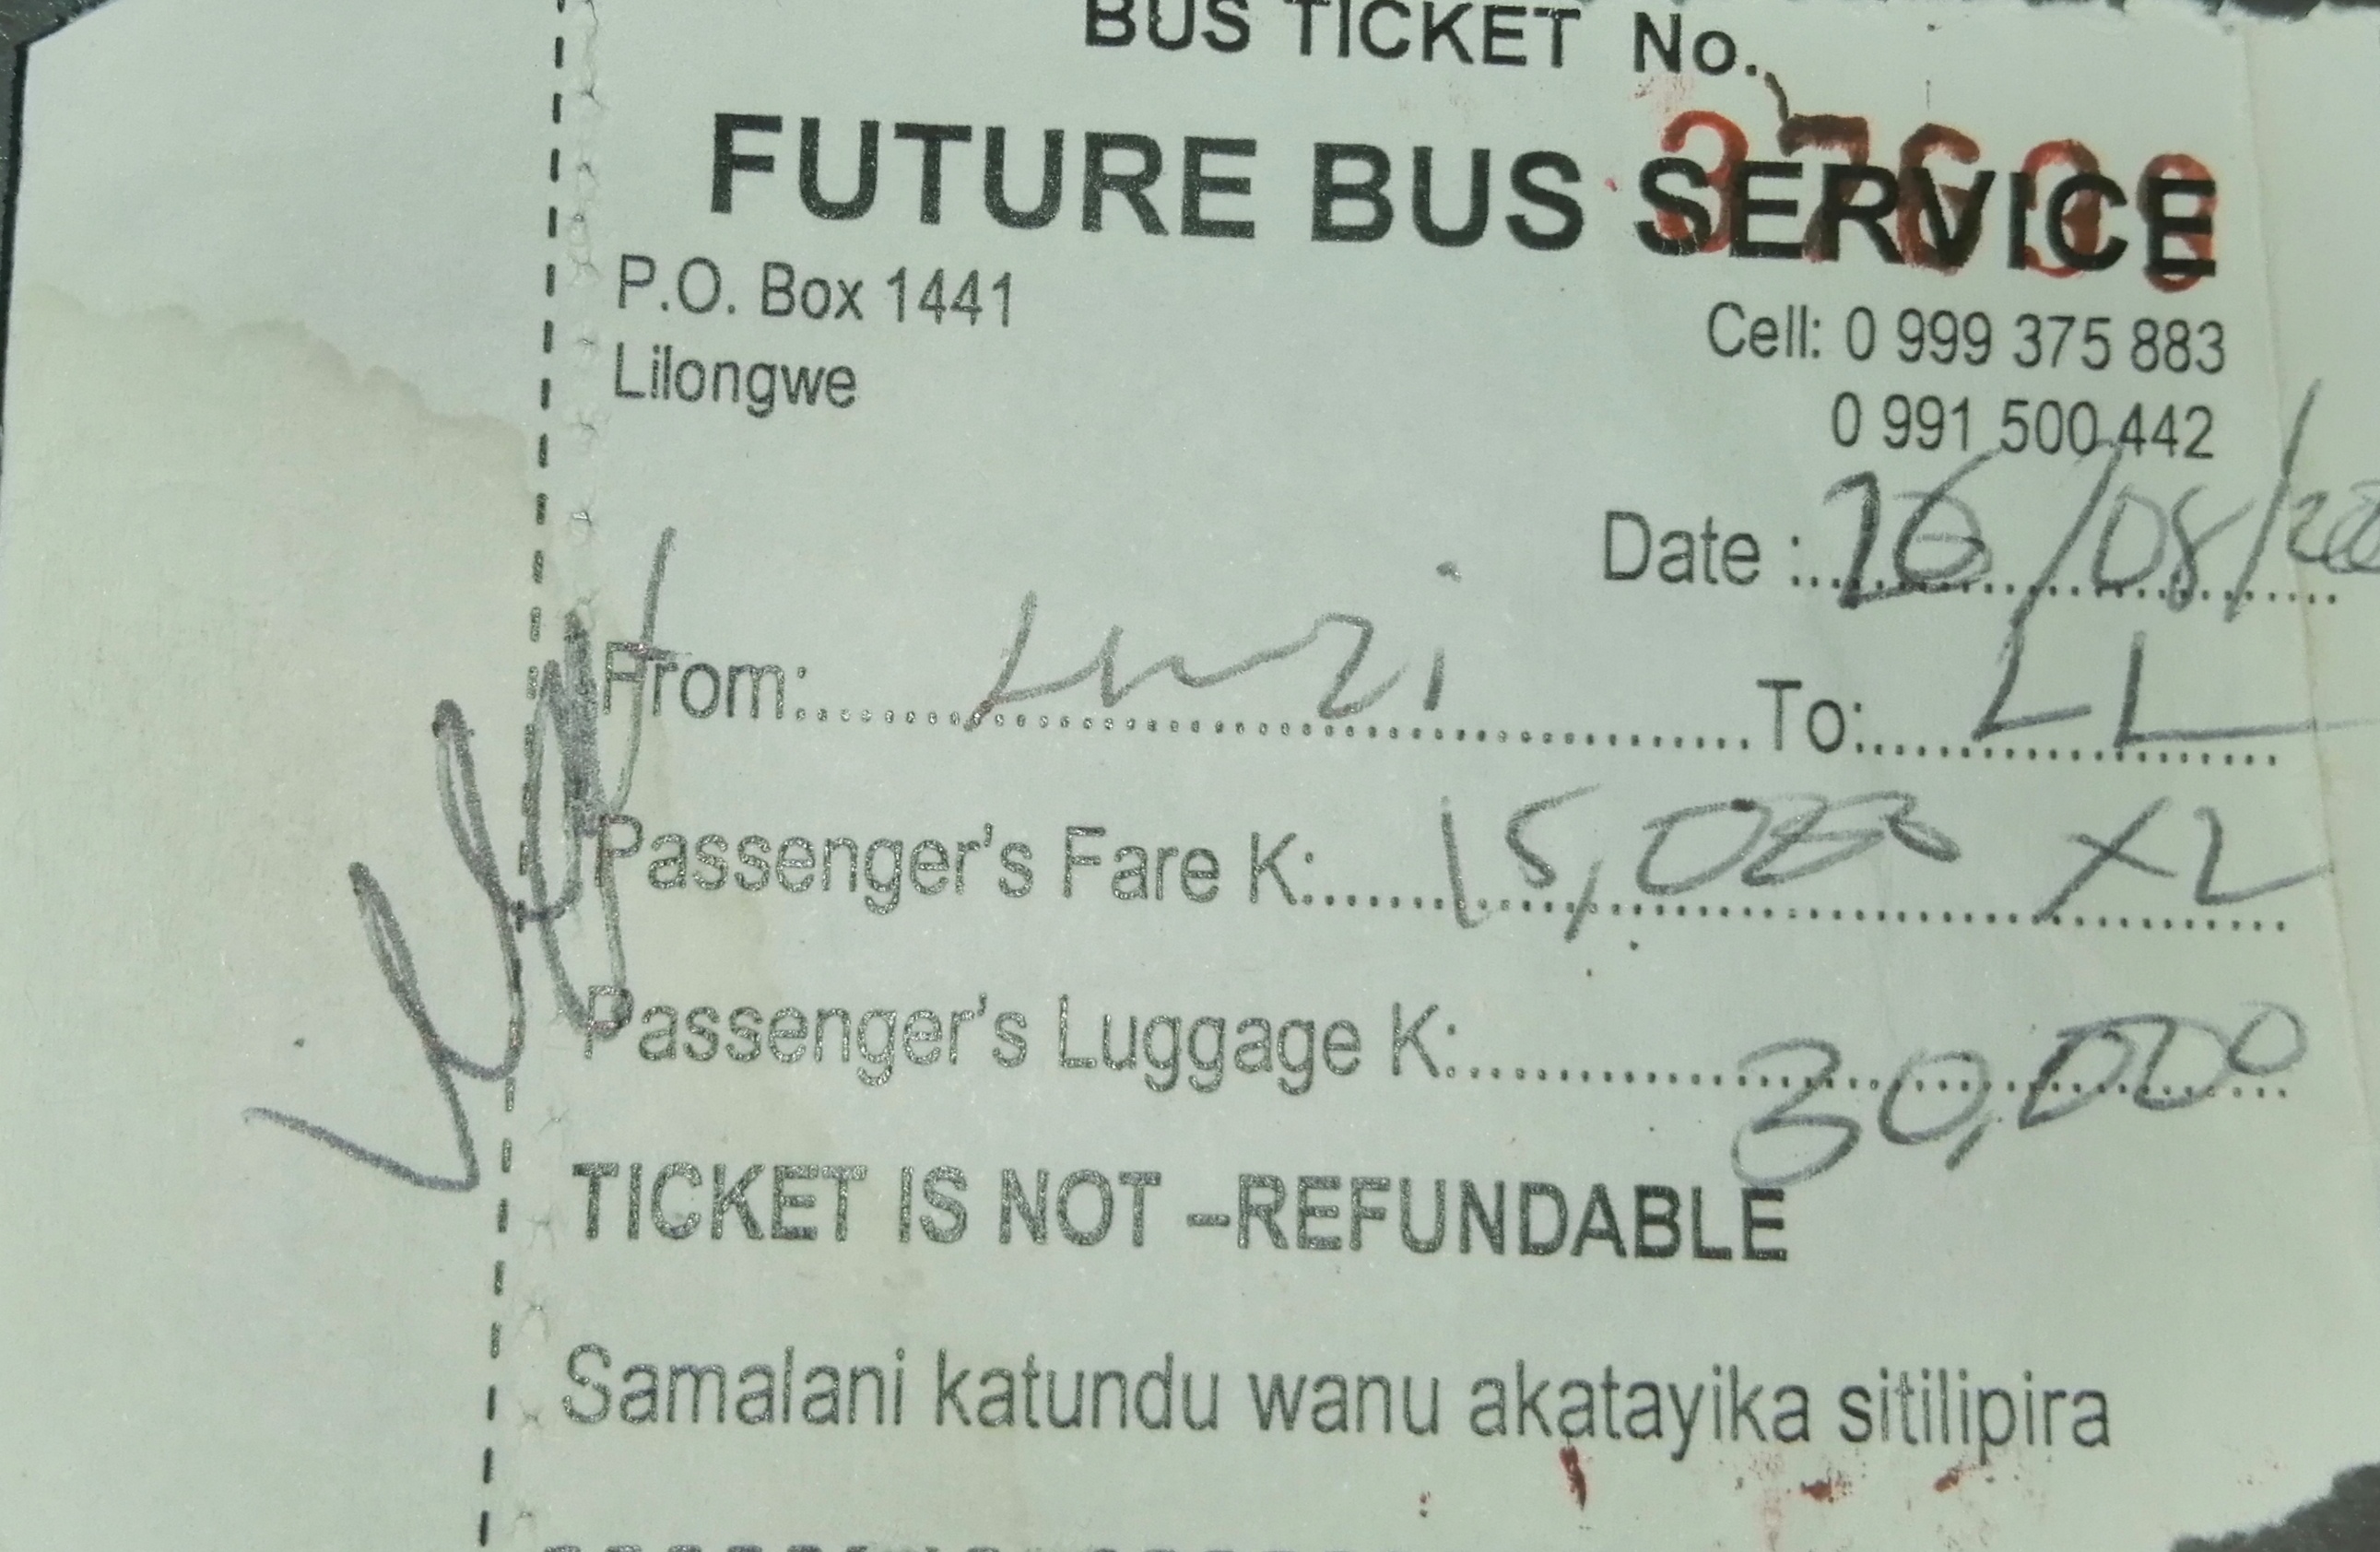 BUS TICKET No.
FUTURE BUS SERVICE
P.O. Box 1441
Cell: 0 999 375 883
Lilongwe
0 991 500 442
Date : 26/08/
From: To: LL
Passenger's Fare K: 15,000 x2
Passenger's Luggage K: 30,000
TICKET IS NOT –REFUNDABLE
Samalani katundu wanu akatayika sitilipira